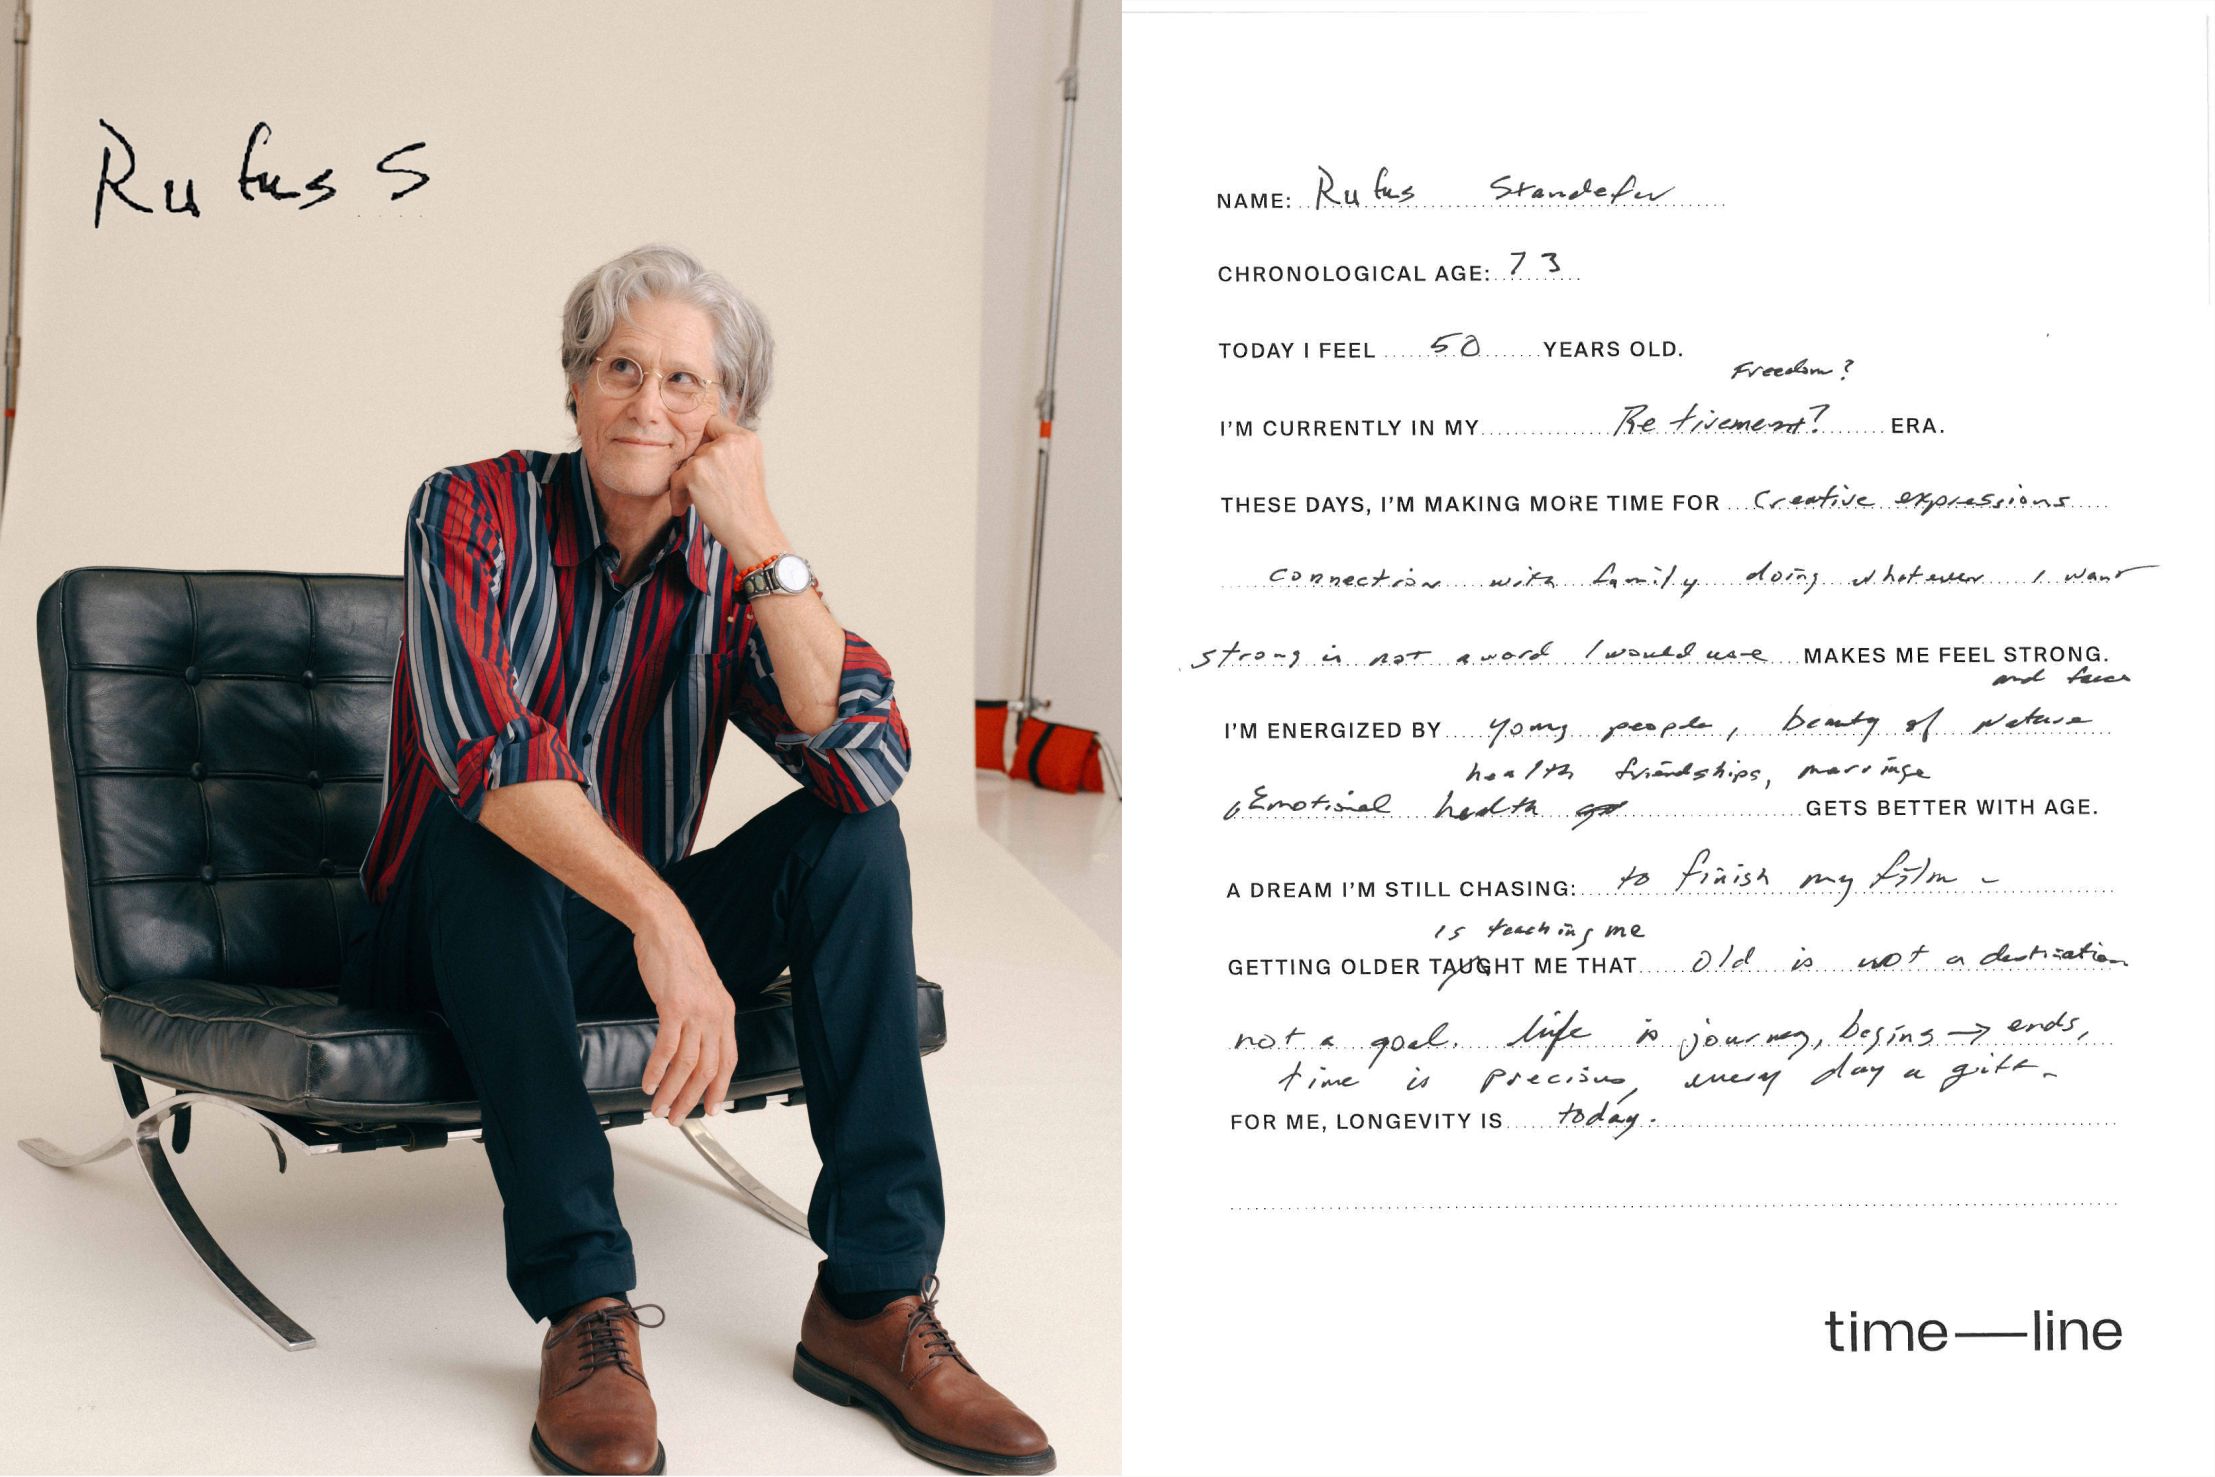 Rufus S
NAME: Rufus Standefer
CHRONOLOGICAL AGE: 73
TODAY I FEEL 50 YEARS OLD.
Freedom?
I'M CURRENTLY IN MY Retirement? ERA.
THESE DAYS, I'M MAKING MORE TIME FOR Creative expressions
connection with family doing whatever I want
strong is not a word I would use MAKES ME FEEL STRONG.
and
I'M ENERGIZED BY young people, beauty of Nature
health friendships, marriage
Emotional health GETS BETTER WITH AGE.
A DREAM I'M STILL CHASING: to finish my film -
is teaching me
GETTING OLDER TAUGHT ME THAT old is not a destination
not a goal. life is journey, begins → ends,
time is precious, every day a gift.
FOR ME, LONGEVITY IS today.
time—line